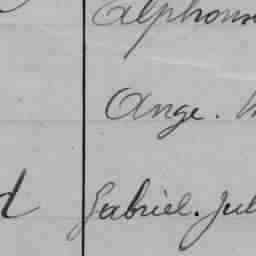 Alphons
Ange.
Gabriel. Jul